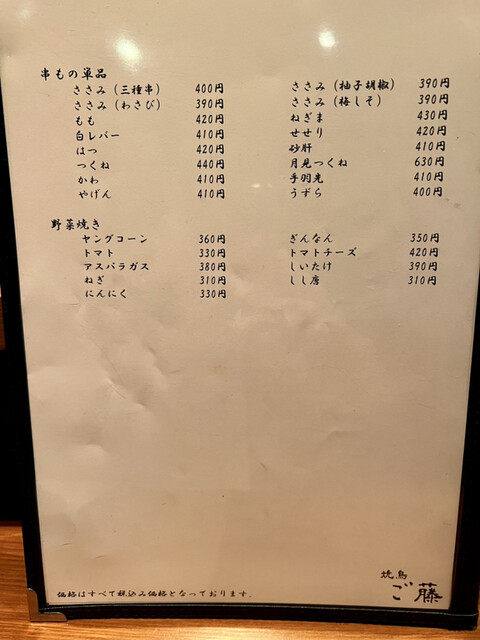 串もの単品
ささみ（三種串） 400円 ささみ（柚子胡椒） 390円
ささみ（わさび） 390円 ささみ（梅しそ） 390円
もも 420円 ねぎま 430円
白レバー 410円 せせり 420円
はつ 420円 砂肝 410円
つくね 440円 月見つくね 630円
かわ 410円 手羽先 410円
やげん 410円 うずら 400円
野菜焼き
ヤングコーン 360円 ぎんなん 350円
トマト 330円 トマトチーズ 420円
アスパラガス 380円 しいたけ 390円
ねぎ 310円 しし唐 310円
にんにく 330円
焼鳥
ご藤
価格はすべて税込み価格となっております。